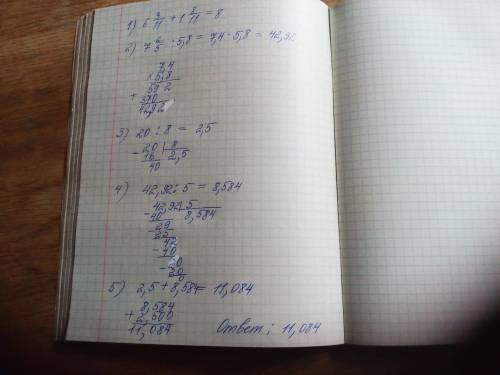 1) 6 3/11 + 1 8/11 = 8
2) 7 2/5 · 5,8 = 7,4 · 5,8 = 42,92
7,4
× 5,8
592
+ 370
42,92
3) 20 : 8 = 2,5
- 20 | 8
16 2,5
40
4) 42,92 : 5 = 8,584
42,92 | 5
- 40 8,584
29
- 25
42
- 40
20
- 20
0
5) 2,5 + 8,584 = 11,084
8,584
+ 2,500
11,084 Ответ: 11,084